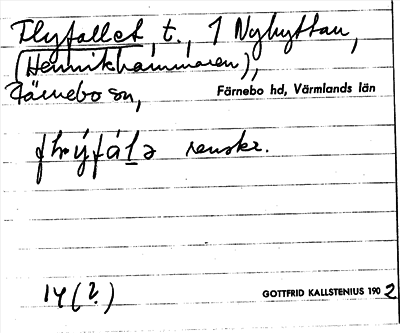 Flyfallet, t., 1 Nyhyttan,
(Henrikhammaren),
Färnebo sn, Färnebo hd, Värmlands län
renskr.
14(?)
GOTTFRID KALLSTENIUS 1902